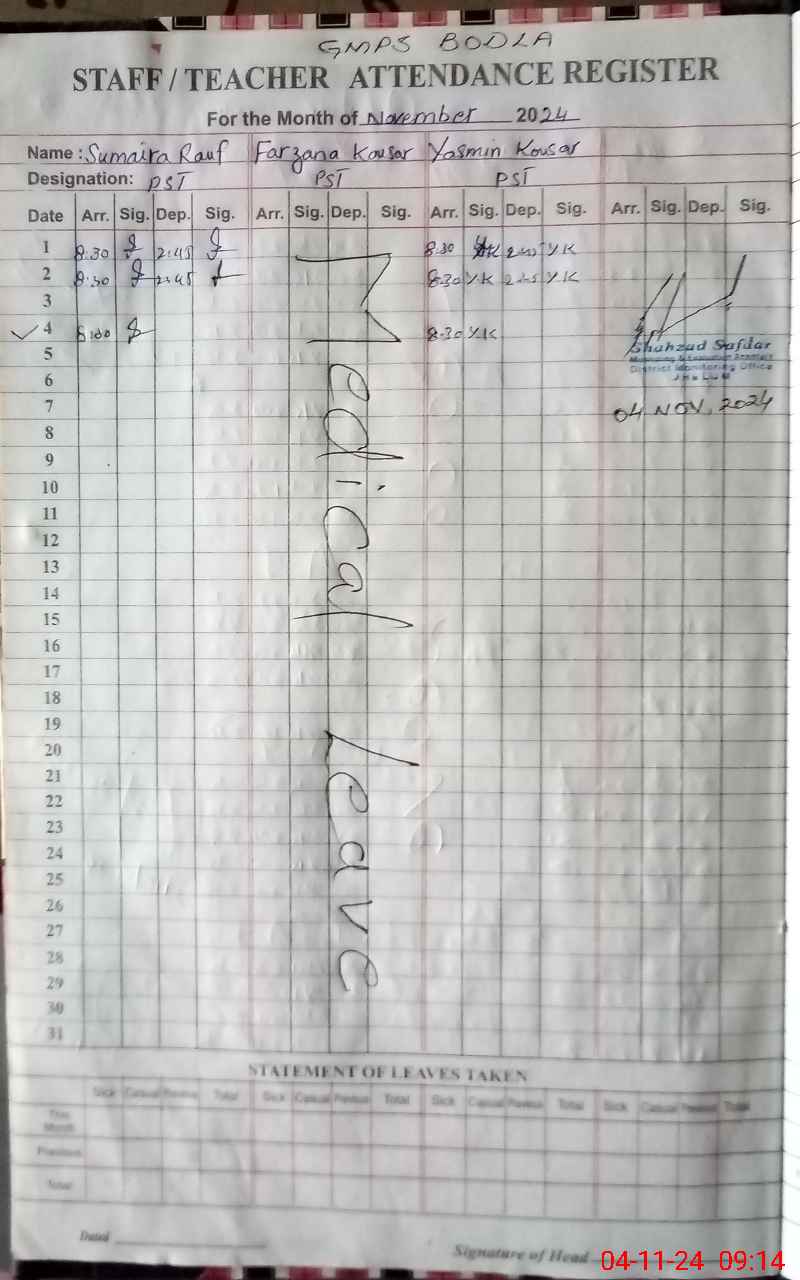 GMPS BODLA
STAFF / TEACHER ATTENDANCE REGISTER
For the Month of November 2024
Name : Sumaira Rauf Farzana Kousar Yasmin Kousar
Designation: PST PST PST
Date Arr. Sig. Dep. Sig. Arr. Sig. Dep. Sig. Arr. Sig. Dep. Sig. Arr. Sig. Dep. Sig.
1 8:30 2:45 8:30 YK 2:45 YK
2 8:30 2:45 8:30 YK 2:45 YK
3
4 8:30 YK
5
6
7
8
9
10
11
12
13
14
15
16
17
18
19
20
21
22
23
24
25
26
27
28
29
30
31
Medical Leave
Shahzad Safdar
Monitoring & Evaluation Assistant
District Monitoring Office
04 NOV, 2024
STATEMENT OF LEAVES TAKEN
Sick Casual Previous Total Sick Casual Previous Total Sick Casual Previous Total Sick Casual Previous Total
This Month
Previous
Total
Dated
Signature of Head
04-11-24 09:14